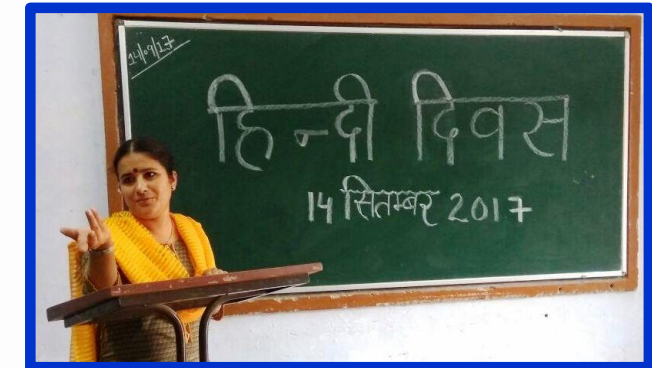 14/09/17
हिन्दी दिवस
14 सितम्बर 2017